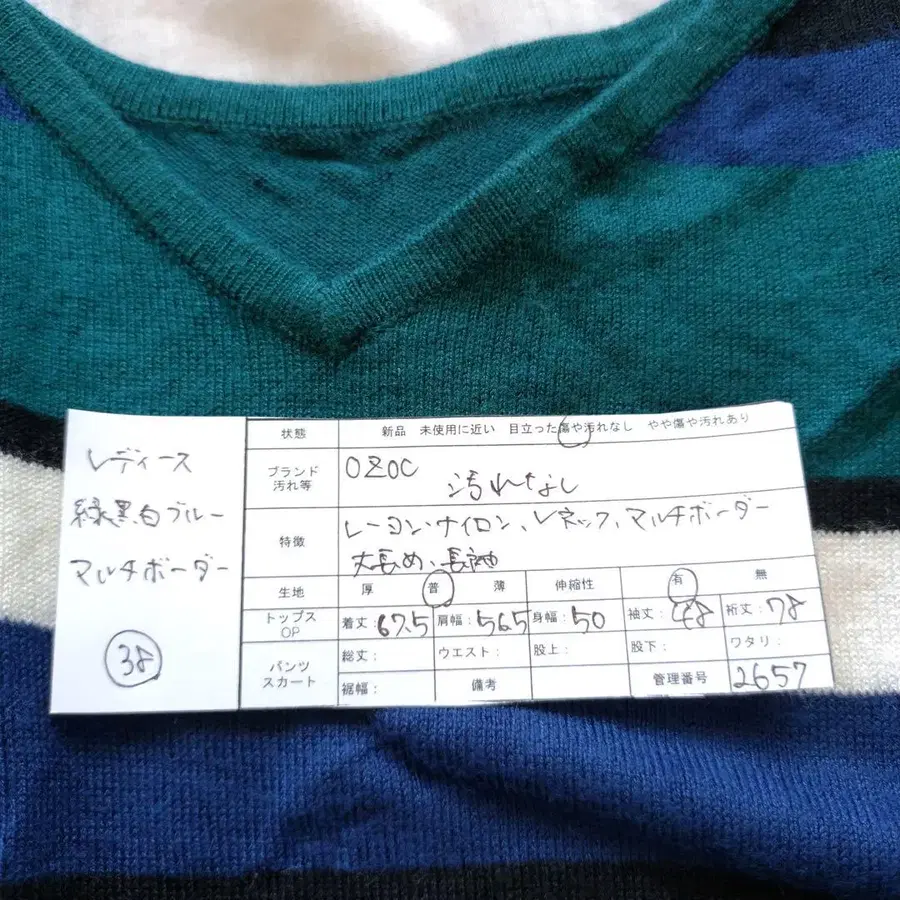 レディース
緑黒白ブルー
マルチボーダー
38
状態 新品 未使用に近い 目立った傷や汚れなし やや傷や汚れあり
ブランド 汚れ等 OZOC 汚れなし
特徴 レーヨン、ナイロン、Vネック、マルチボーダー
丈長め、長袖
生地 厚 普 薄 伸縮性 有 無
トップス OP 着丈:67.5 肩幅:56.5 身幅:50 袖丈:48 裄丈:78
パンツ スカート 総丈: ウエスト: 股上: 股下: ワタリ:
裾幅: 備考 管理番号 2657